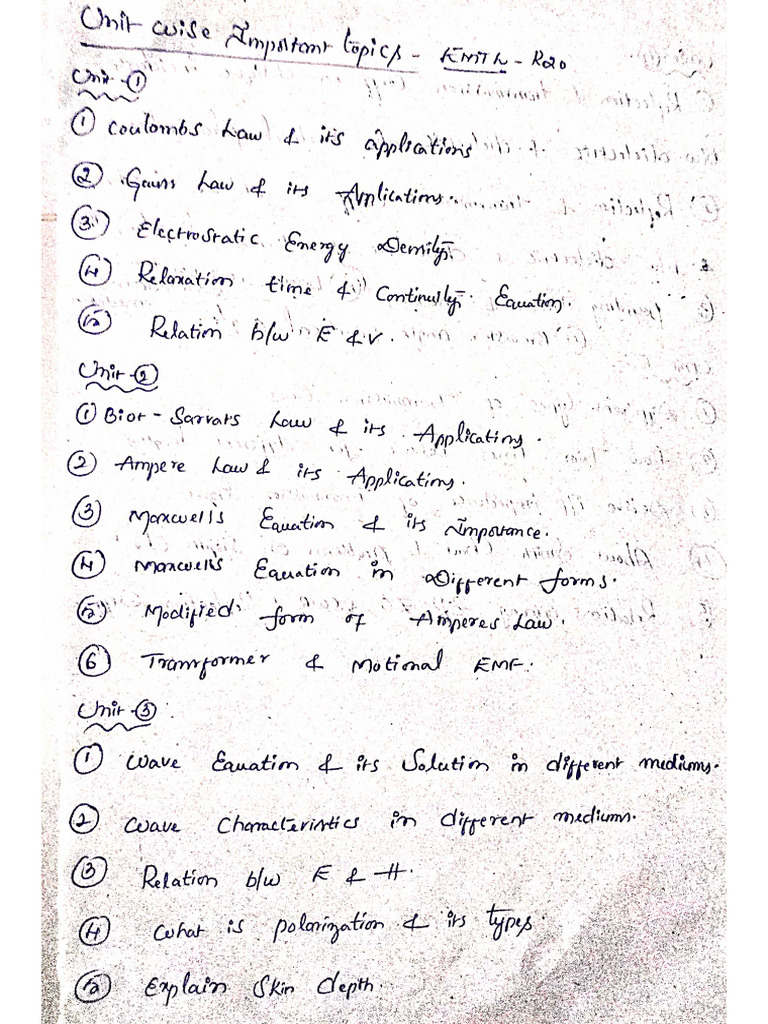 Unit wise Important topics - EMTL - R20
Unit-①
① Coulombs Law & its applications
② Gauss Law & its Applications.
③ Electrostatic Energy Density.
④ Relaxation time & Continuity Equation.
⑤ Relation b/w E & V.
Unit-②
① Biot-Sarvats Law & its Applications.
② Ampere Law & its Applications.
③ Maxwell's Equation & its Importance.
④ Maxwell's Equation in Different forms.
⑤ Modified form of Amperes Law.
⑥ Transformer & Motional EMF.
Unit-③
① Wave Equation & its Solution in different mediums.
② Wave Characteristics in different mediums.
③ Relation b/w E & H.
④ What is polarization & its types.
⑤ Explain Skin depth.